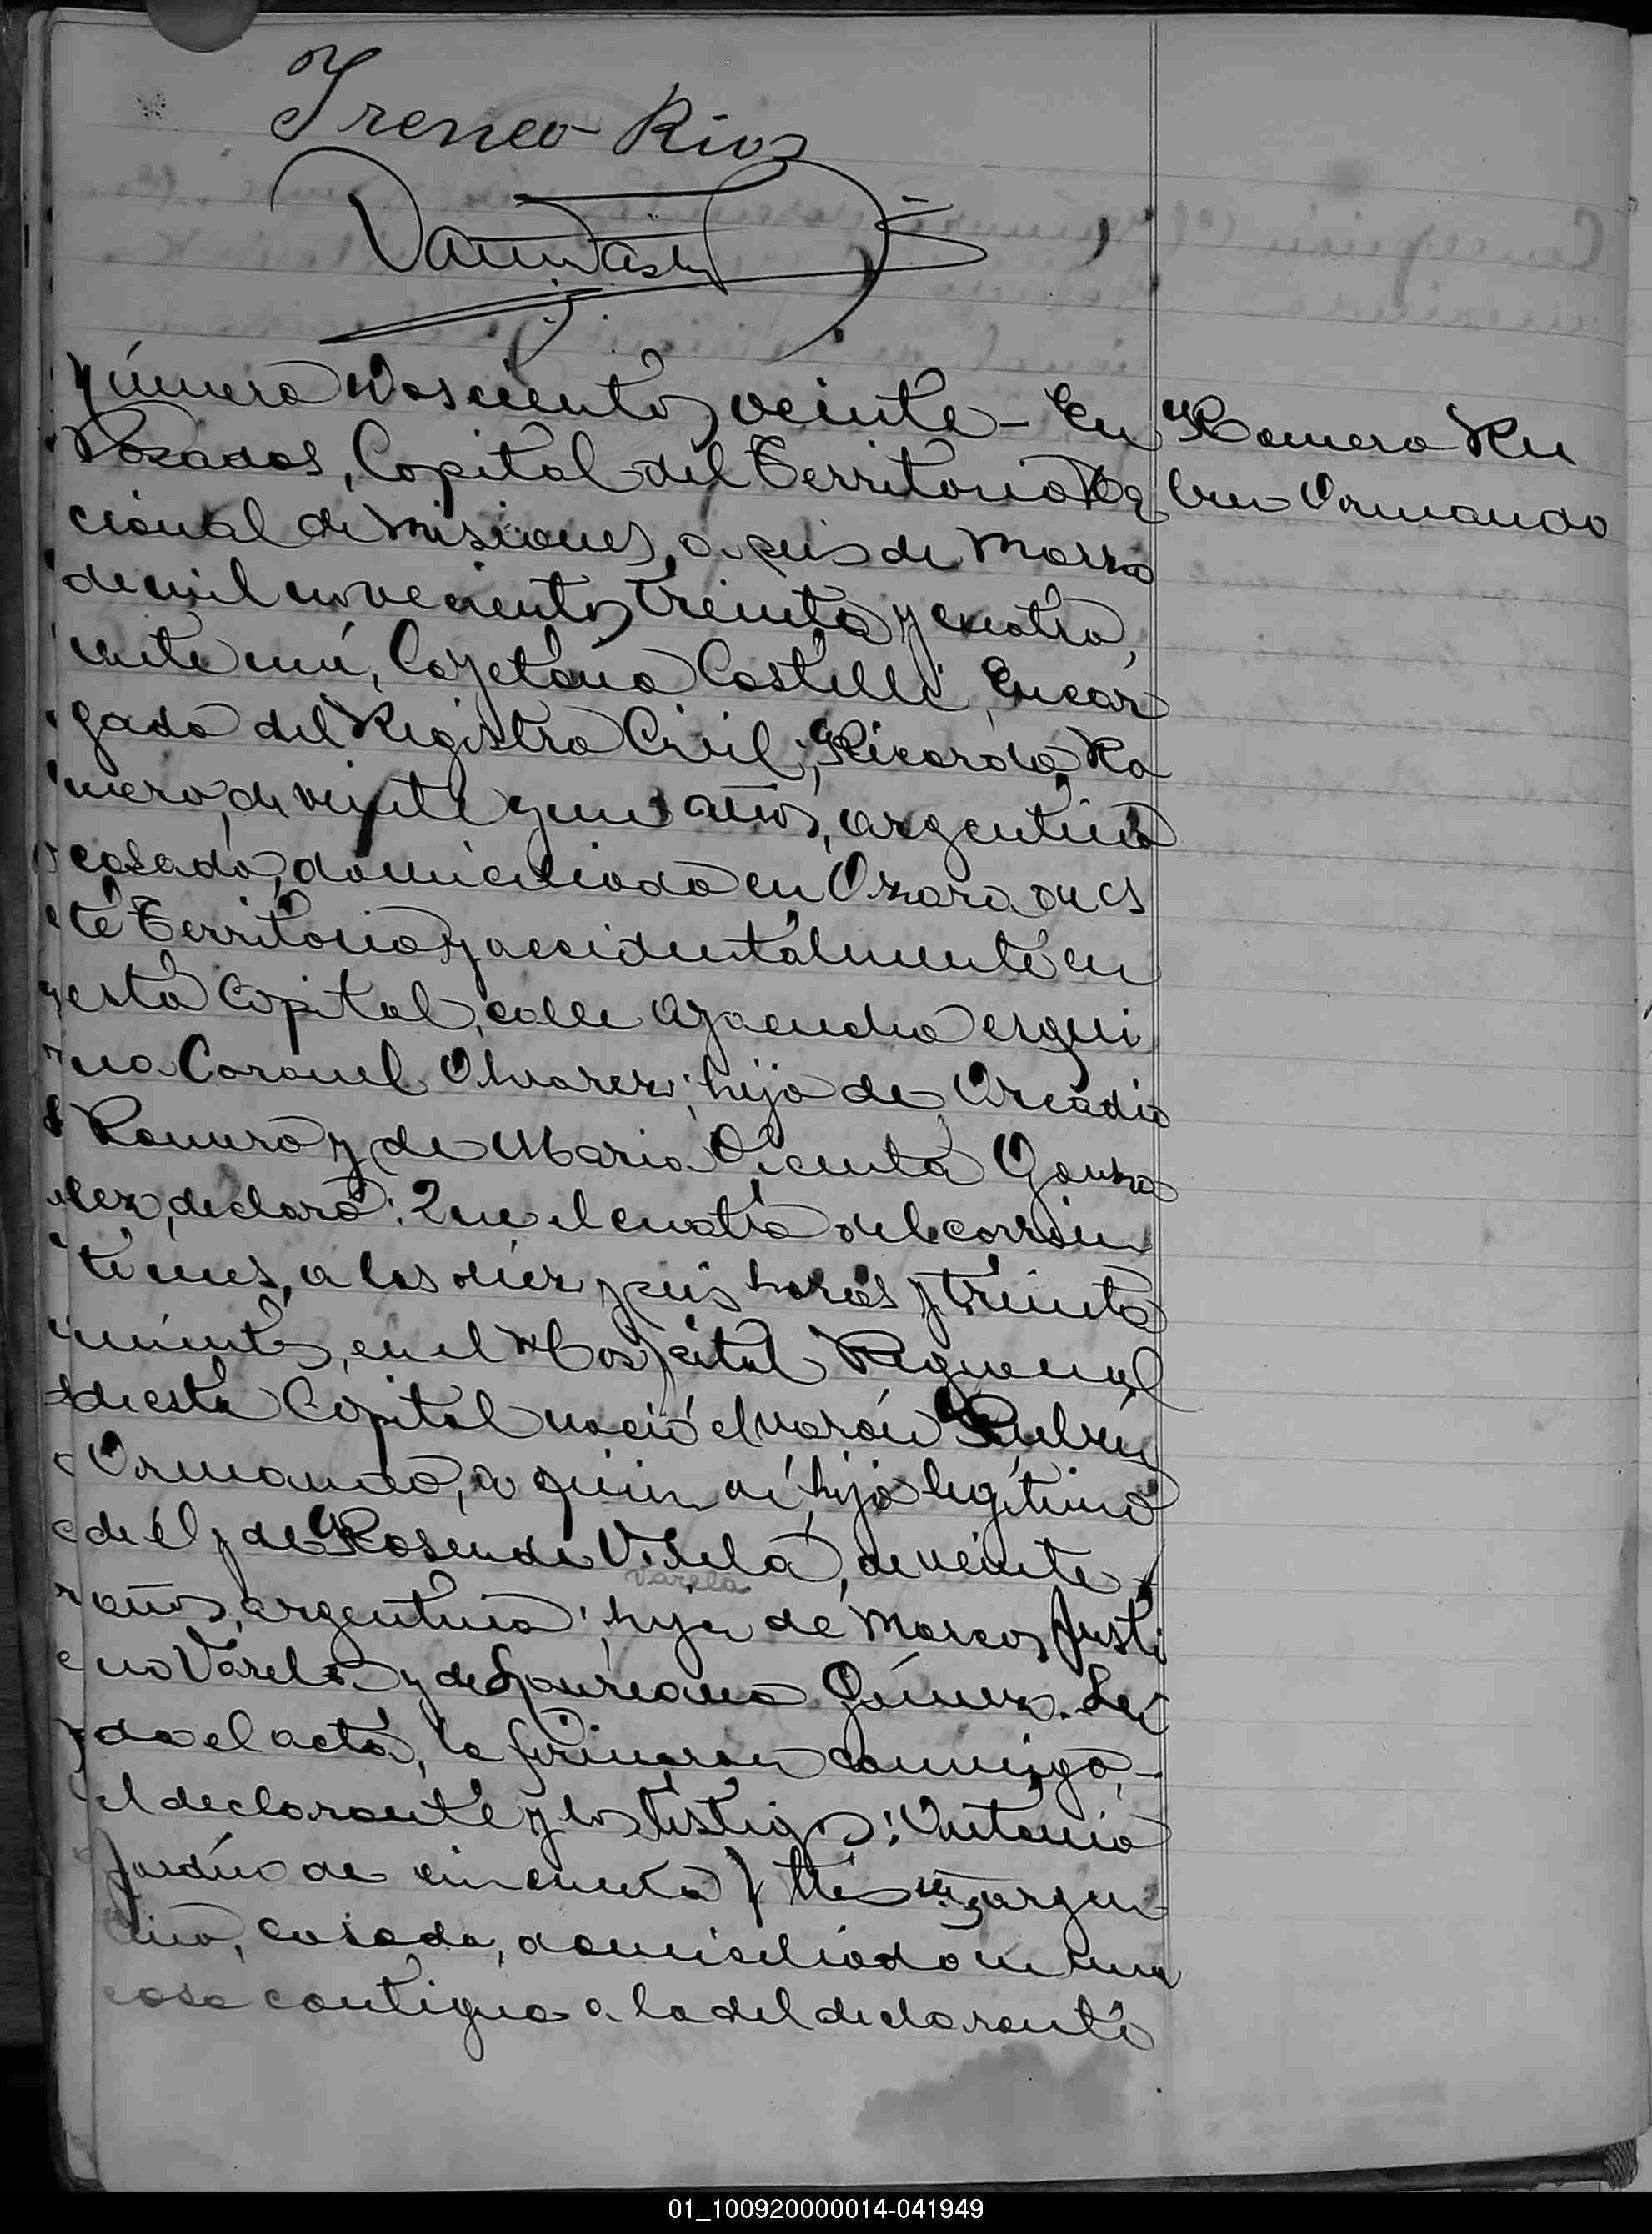 Ireneo Rios
Número Doscientos veinte - En
Posadas, Capital del Territorio Na
cional de Misiones, a seis de Marzo
de mil novecientos treinta y cuatro,
ante mí, Cayetano Castelli, Encar
gado del Registro Civil; Ricardo Ro
mero, de veinte y un años, argentino
casado, domiciliado en Azara de es
te Territorio y accidentalmente en
esta Capital, calle Ayacucho esqui
na Coronel Alvarez; hijo de Arcadio
Romero y de Maria Vicenta Gonza
lez, declaró: Que el cuatro del corrien
te mes, a las diez y seis horas y treinta
minutos, en el Hospital Regional
de esta Capital nació el varón Rubén
Armando, a quien vi, hijo legítimo
de él y de Rosenda Varela, de veinte
Varela
años, argentina; hija de Marcos Justi
no Varela y de Laureana Gímenez. Leí
da el acta, la firmaron conmigo, -
el declarante y los testigos: Antonio
Jardín de cincuenta y tres argen
tino, casado, domiciliado en una
casa contigua a la del declarante
Romero Ru
ben Armando
01_100920000014-041949